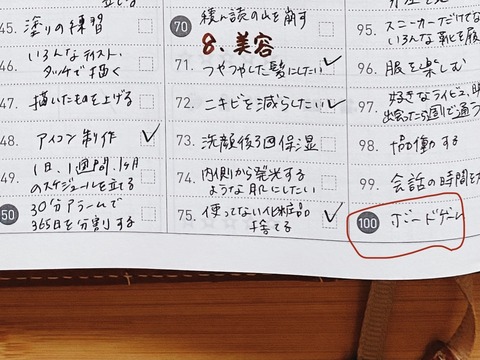 45. 塗りの練習
46. いろんなテイスト、
タッチで描く
47. 描いたものを上げる
48. アイコン制作
49. 1日、1週間、1ヶ月
のスケジュールを立てる
50 30分アラームで
365日を分割する
70 積ん読の山を崩す
8. 美容
71. つやつやした髪にしたい
72. ニキビを減らしたい
73. 洗顔後3回保湿
74. 内側から発光する
ような肌にしたい
75. 使ってない化粧品
捨てる
95. スニーカーだけでな
いろんな靴を履
96. 服を楽しむ
97. 好きなライビュ、
98. 働する
99. 会話の時間を
100 ボードゲーム